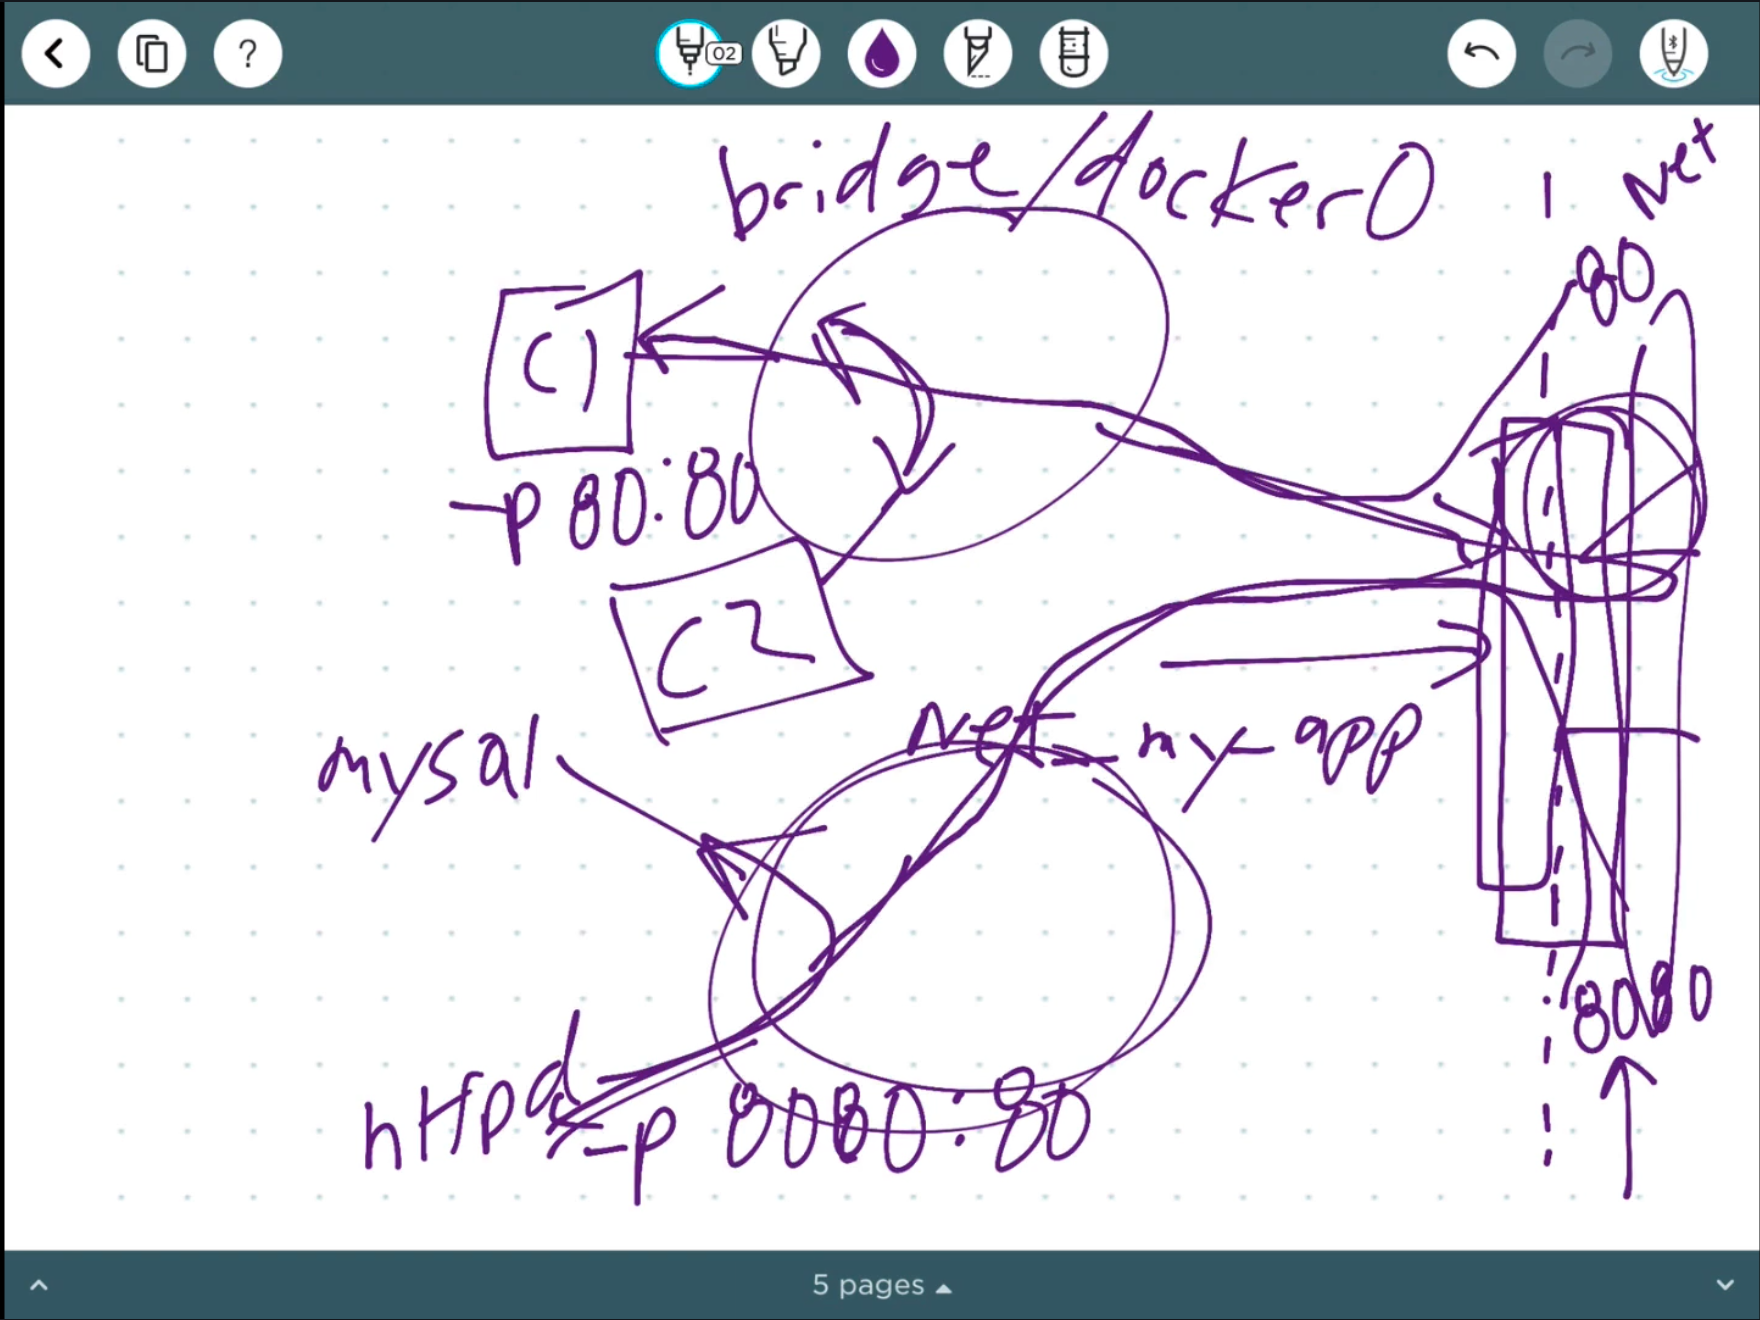 ?
02
bridge/docker0
Net
80
C1
-p 80:80
C2
mysql
Net my-app
8080
httpd
-p 8080:80
5 pages